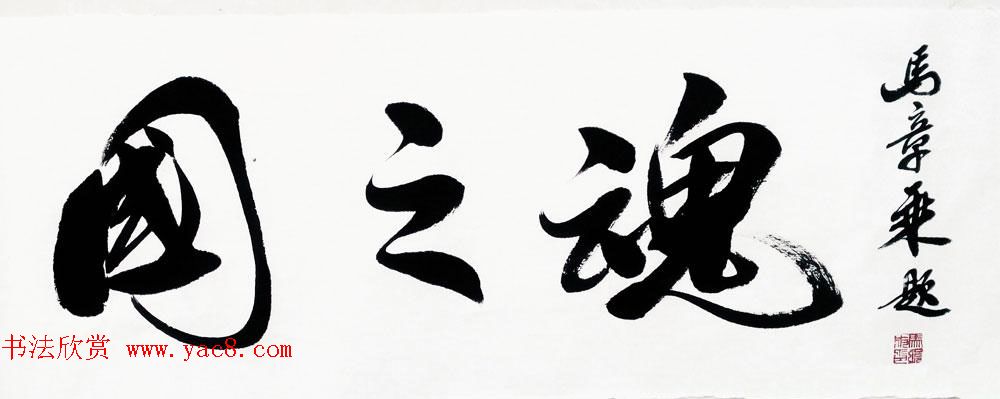 國之魂
馬章乘題
书法欣赏 www.yac8.com